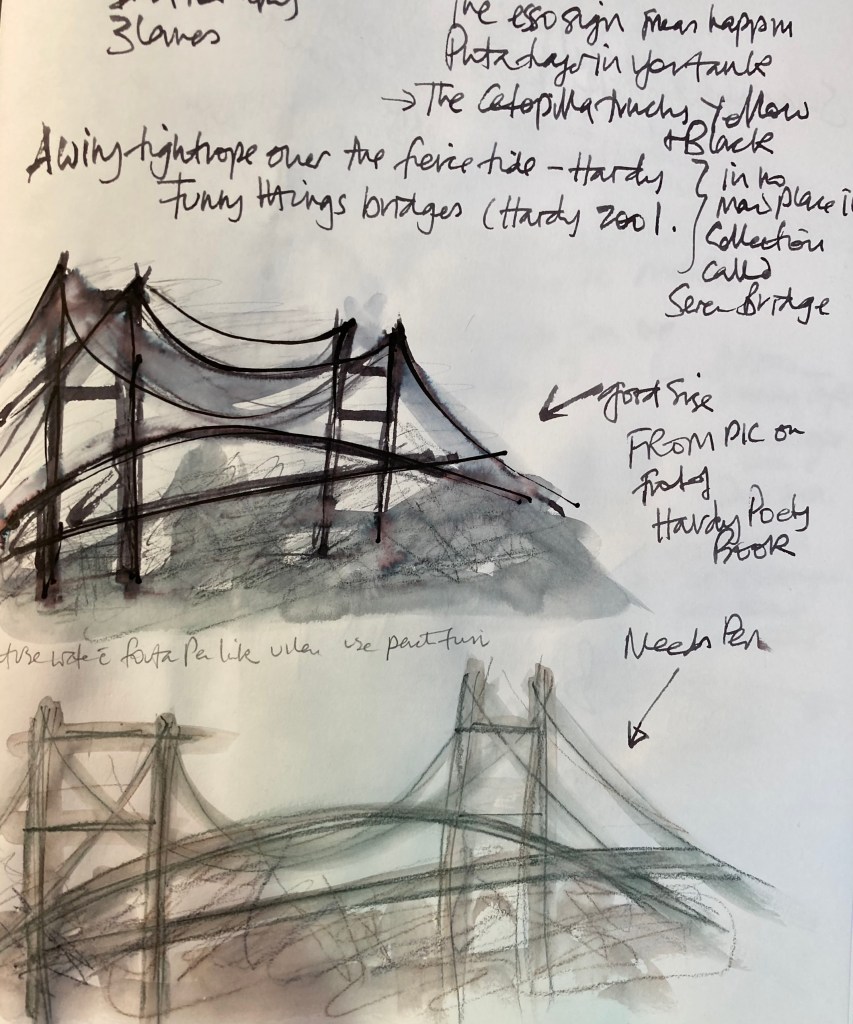 3 lanes
The esso sign means happy
Put a tiger in your tank
→ The Catopilla trucks Yellow
+ Black
A wiry tightrope over the fierce tide – Hardy
Funny things bridges (Hardy 2001.
in no
mans place i
Collection
called
Seren Bridge
Good Size
FROM PIC on
front of
Hardy Poety
Book
use water
Pen like when use
Needs Pen